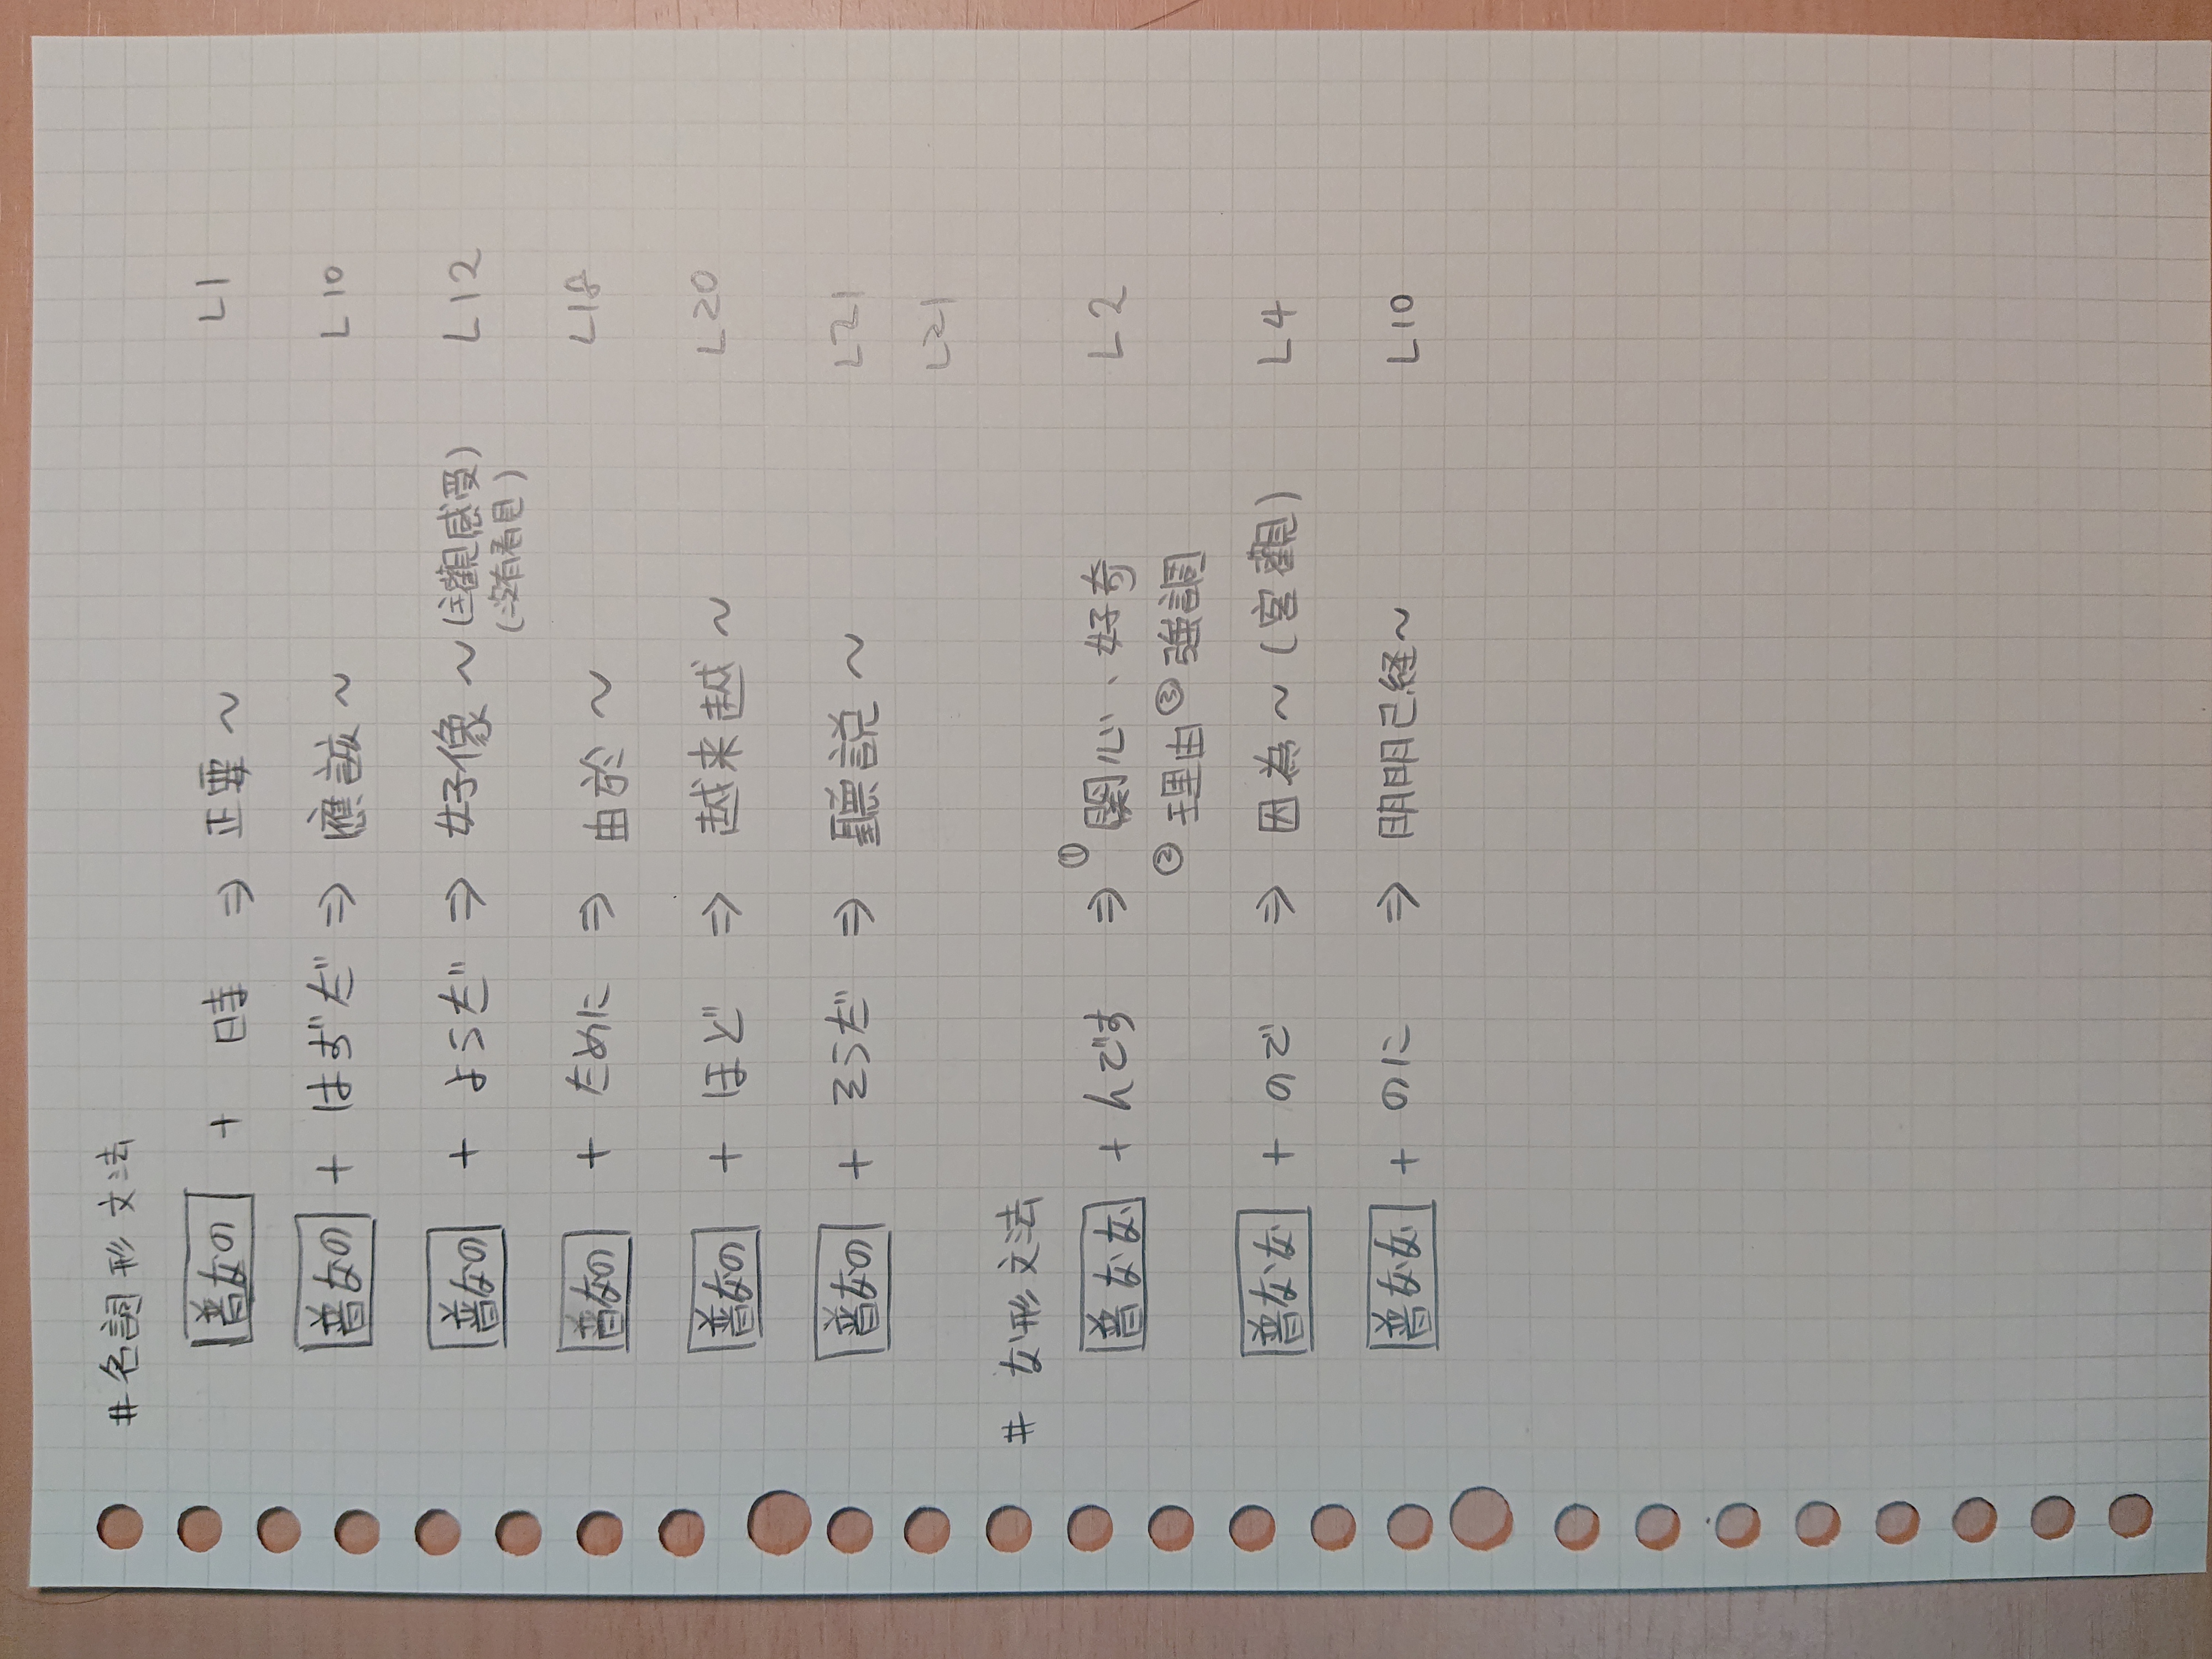 # 名詞形文法
普なの + 時 ⇒ 正要～ L1
普なの + はずだ ⇒ 應該～ L10
普なの + ようだ ⇒ 好像～(主觀感受) L12
(沒有看見)
普なの + ために ⇒ 由於～ L18
普なの + ほど ⇒ 越来越～ L20
普なの + そうだ ⇒ 聽説～ L21
L21
# な形文法
普なな + んです ⇒ ①関心、好奇 L2
②理由 ③強調
普なな + ので ⇒ 因為～(客觀) L4
普なな + のに ⇒ 明明已経～ L10